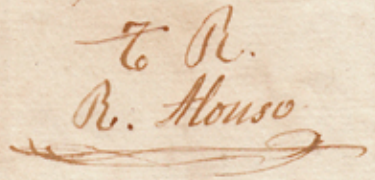 T R.
R. Alonso